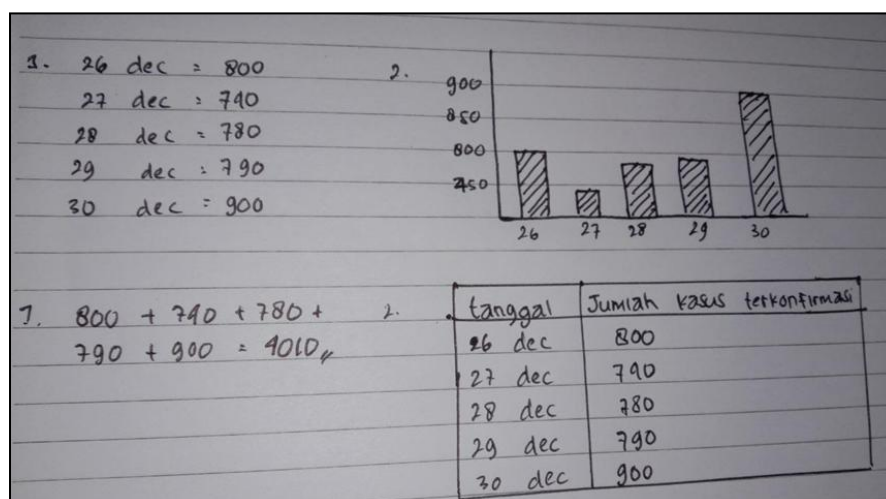 1. 26 dec = 800
27 dec = 740
28 dec = 780
29 dec = 790
30 dec = 900
2.
900
850
800
750
26 27 28 29 30
1. 800 + 740 + 780 +
790 + 900 = 4010
2.
tanggal Jumlah kasus terkonfirmasi
26 dec 800
27 dec 740
28 dec 780
29 dec 790
30 dec 900